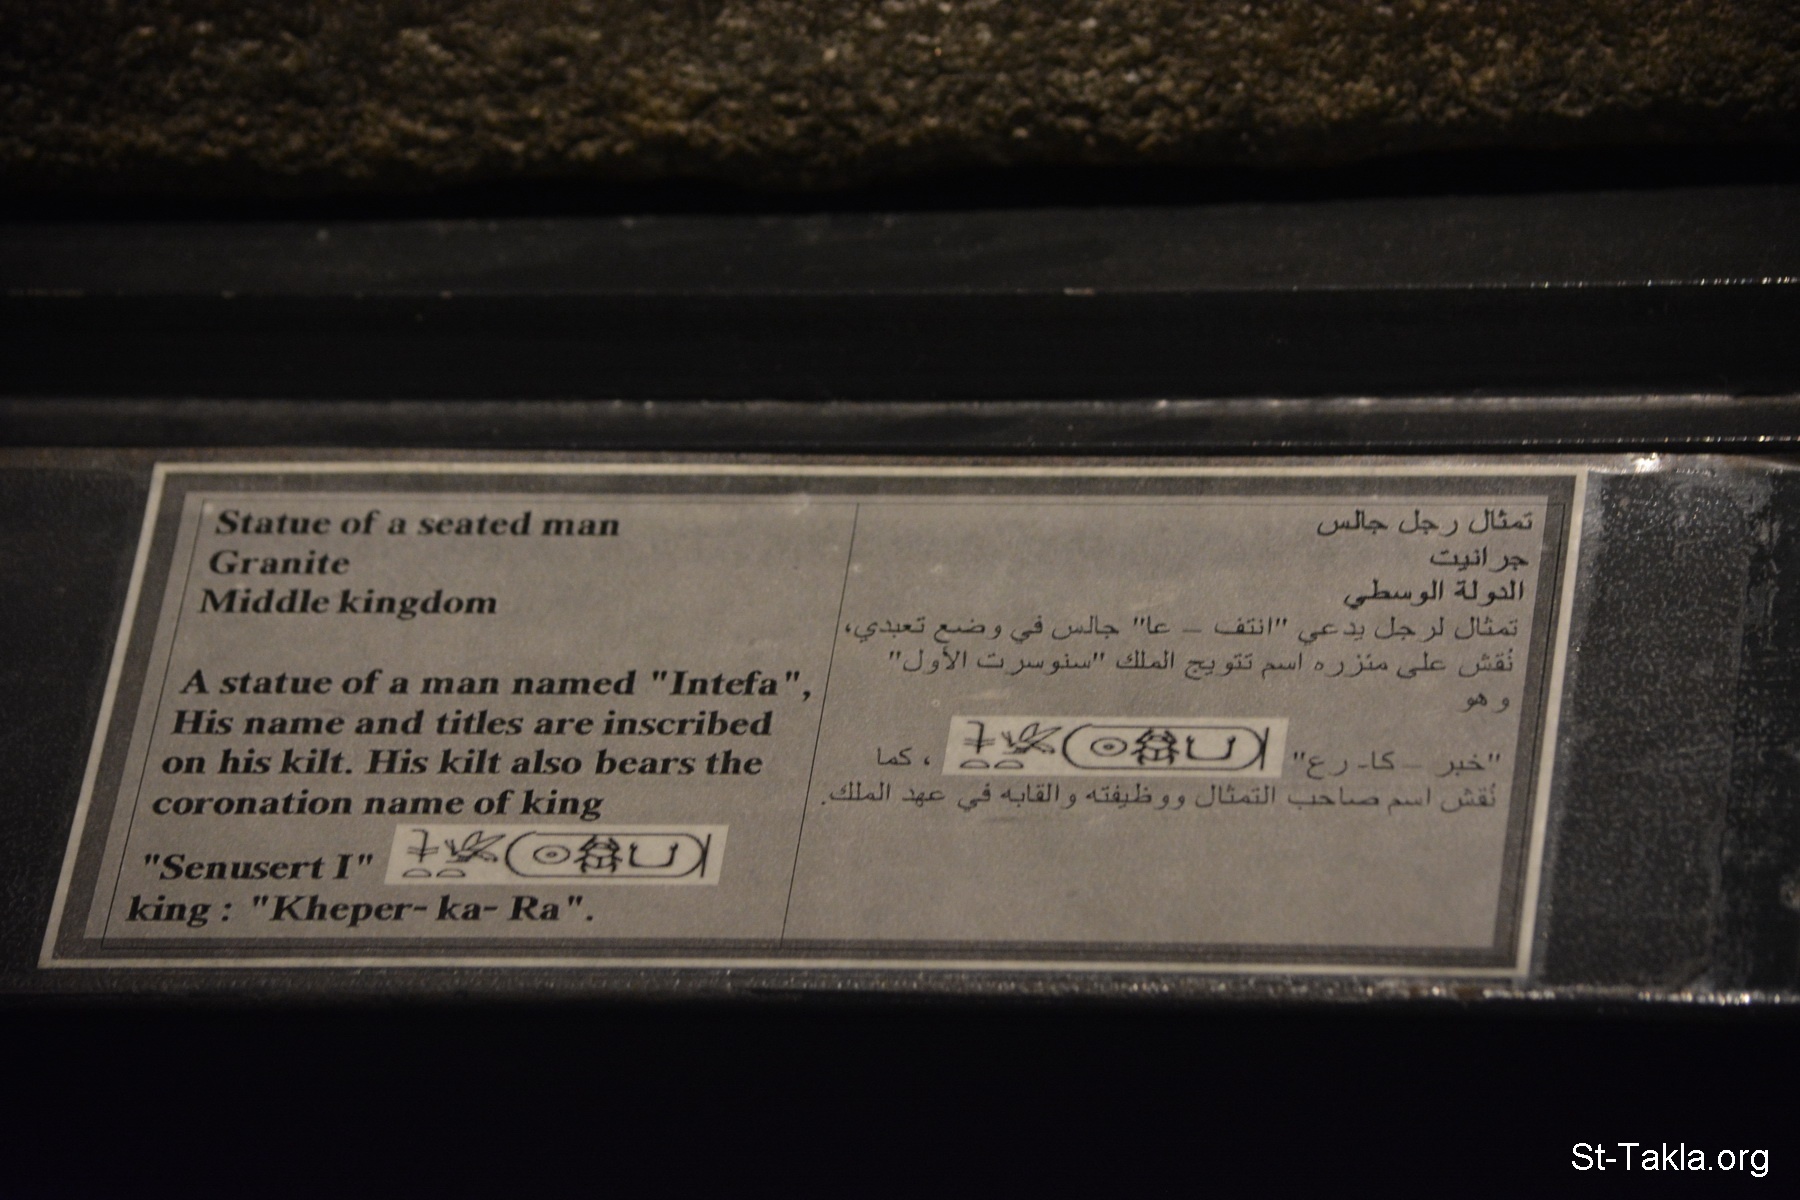 Statue of a seated man
Granite
Middle kingdom
A statue of a man named "Intefa",
His name and titles are inscribed
on his kilt. His kilt also bears the
coronation name of king
"Senusert I" 𓇓𓏏𓆤𓏏𓍹𓇳𓆣𓂓𓍺
king : "Kheper- ka- Ra".
تمثال رجل جالس
جرانيت
الدولة الوسطي
تمثال لرجل يدعي "انتف – عا" جالس في وضع تعبدي،
نُقش على مئزره اسم تتويج الملك "سنوسرت الأول"
وهو
"خبر – كا- رع" 𓇓𓏏𓆤𓏏𓍹𓇳𓆣𓂓𓍺 ، كما
نُقش اسم صاحب التمثال ووظيفته والقابه في عهد الملك.
St-Takla.org